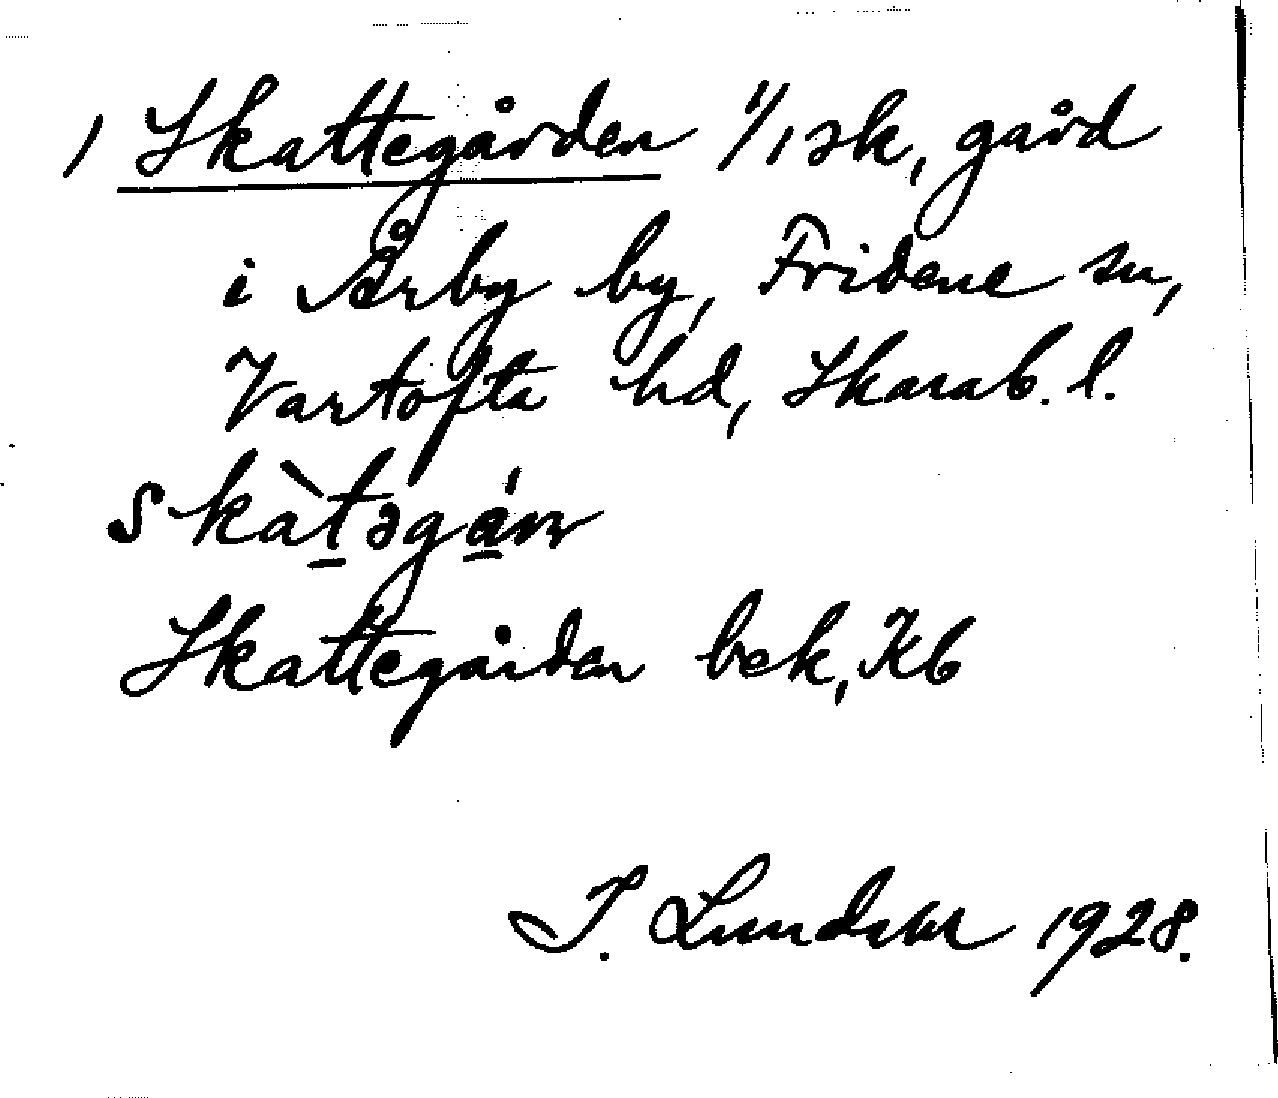 1 Skattegården 1/1 sk, gård
i Årby by, Fridene sn,
Vartofta hd, Skarab. l.
skàt̲əgá̲n
Skattegården bek, Kb
I. Lundahl 1928.